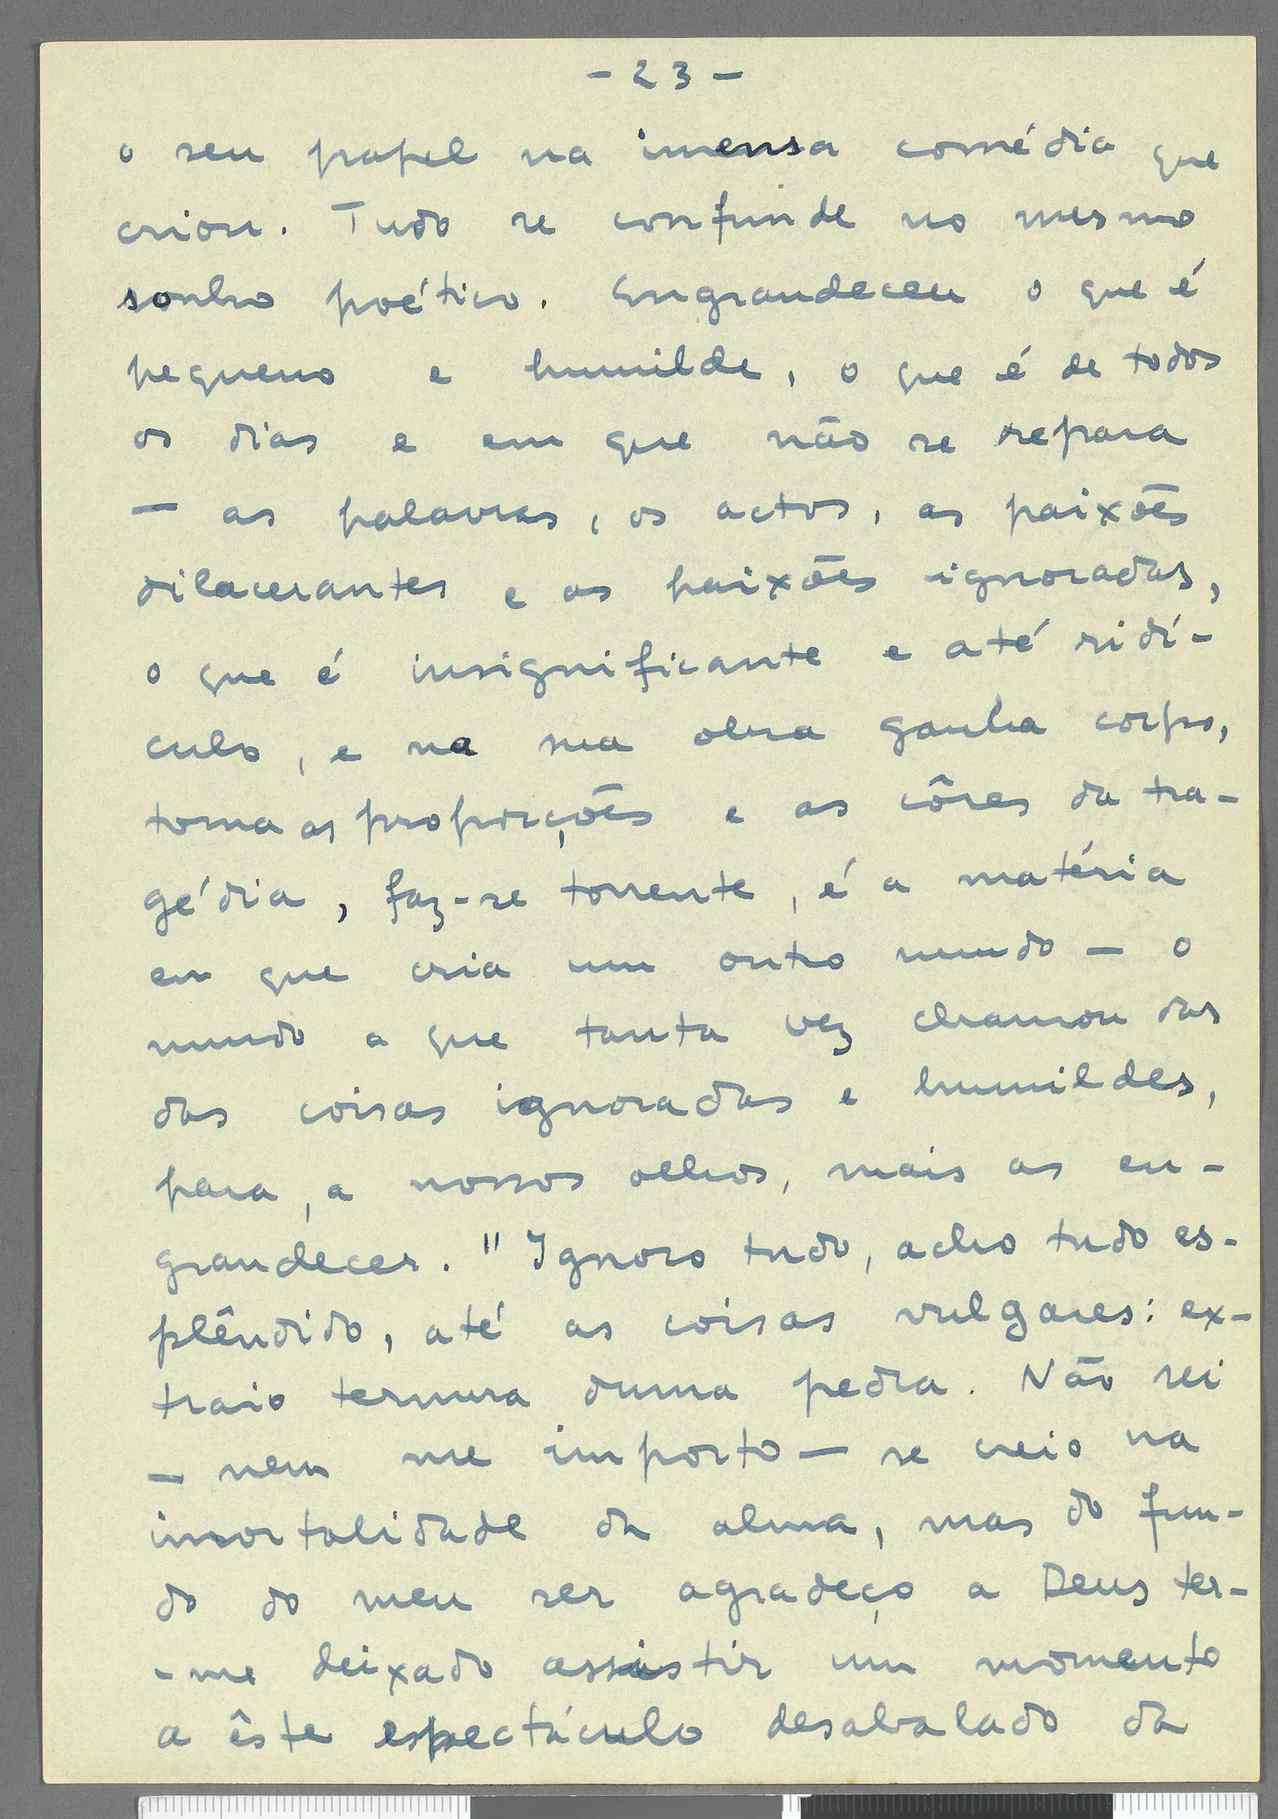 - 23 -
o seu papel na imensa comédia que
criou. Tudo se confunde no mesmo
sonho poético. Engrandeceu o que é
pequeno e humilde, o que é de todos
os dias e em que não se repara
— as palavras, os actos, as paixões
dilacerantes e as paixões ignoradas,
o que é insignificante e até ridí-
culo, e na sua obra ganha corpo,
toma as proporções e as côres da tra-
gédia, faz-se torrente, é a matéria
em que cria um outro mundo — o
mundo a que tanta vez chamou das
das coisas ignoradas e humildes,
para, a nossos olhos, mais as en-
grandecer. "Ignoro tudo, acho tudo es-
plêndido, até as coisas vulgares: ex-
traio ternura duma pedra. Não sei
— nem me importo — se creio na
imortalidade da alma, mas do fun-
do do meu ser agradeço a Deus ter-
-me deixado assistir um momento
a êste espectáculo desabalado da